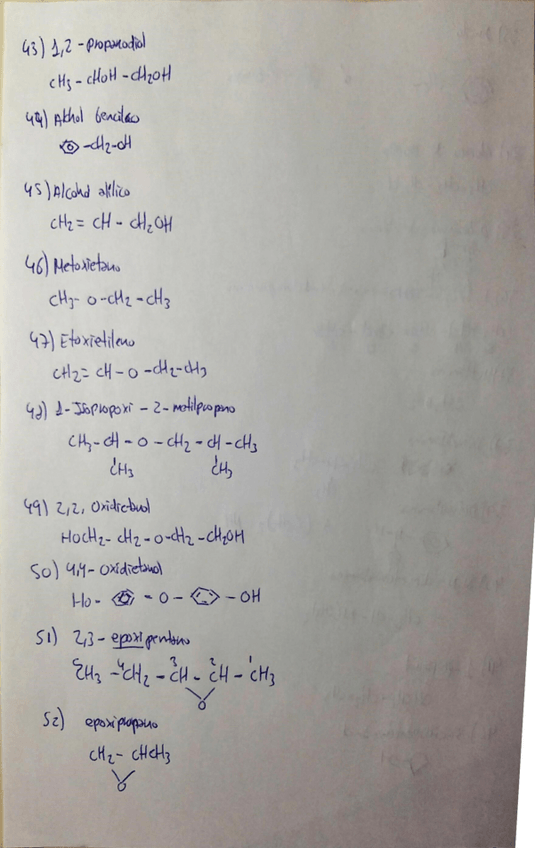 43) 1,2-propanodiol
CH3 - CHOH - CH2OH
44) Alchol bencilico
-CH2-OH
45) Alcohol alilico
CH2 = CH - CH2OH
46) Metoxietano
CH3- O -CH2 - CH3
47) Etoxietileno
CH2= CH - O - CH2-CH3
48) 1-Isopropoxi - 2-metilpropano
CH3-CH - O - CH2 - CH - CH3
CH3 CH3
49) 2,2, Oxidietanol
HOCH2- CH2 -O-CH2 -CH2OH
50) 4,4-Oxidietanol
HO- = O - - OH
51) 2,3- epoxipentano
5 4 3 2 1
CH3 - CH2 - CH - CH - CH3
O
52) epoxipropano
CH2 - CHCH3
O